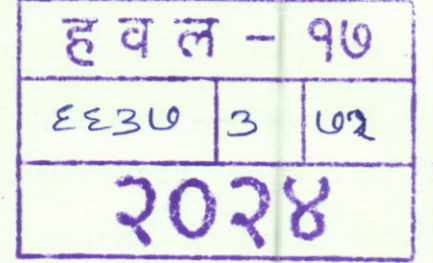 ह व ल - १७
६६३७ ३ ७२
२०२४